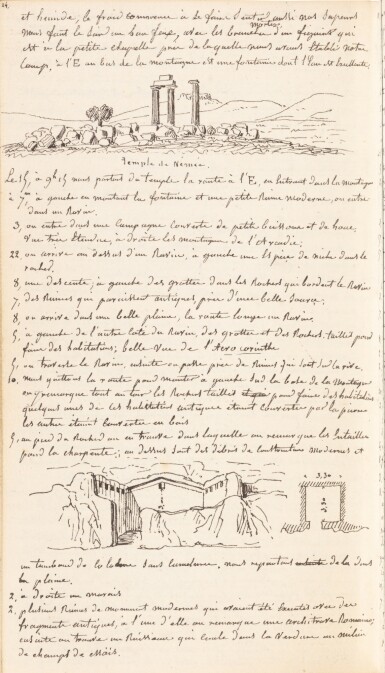 24.
et humide, le froid commence à se faire sentir aussi nos sapeurs
nous font le soir un bon feu, avec les branches d'un figuier qui
est à la petite chapelle près de laquelle nous avons établi notre
camp, à l'E au bas de la montagne est une fontaine dont l'eau est excellente.
Temple de Némée.
Le 15, à 9h 15 nous partons du temple la route à l'E, en entrant dans la montagne
à 7, à gauche en montant la fontaine et une petite Ruine moderne, on entre
dans un Ravin.
3, on entre dans une Campagne couverte de petits buissons et de haies,
Vue très étendue, à droite les montagnes de l'Arcadie;
22, on arrive au dessus d'un Ravin, à gauche une espèce de niche dans le
rocher.
8, une descente, à gauche des grottes dans les Rochers qui bordent le Ravin
7, des Ruines qui paraissent antiques près d'une belle source;
8, on arrive dans une belle plaine, la route longe un Ravin;
5, à gauche de l'autre côté du Ravin, des grottes et des Rochers taillés pour
faire des habitations; belle vue de l'Acro corinthe
5, on traverse le Ravin, ensuite on passe près de Ruines qui sont sur la rive,
10, nous quittons la route pour monter à gauche sur la base de la Montagne
on y remarque tout au tour les Rochers taillés pour faire des habitations
quelques unes de ces habitations antiques étaient couvertes par la pierre
les autres étaient couvertes en bois
5, au pied du Rocher on en trouve dans laquelle on remarque les entailles
pour la charpente; au dessus sont des débris de constructions modernes et
3,30
un tambour de colonne sans cannelures, nous repartons de là dans
la plaine.
2, à droite un marais
2, plusieurs Ruines de monument modernes qui avaient été exécutés avec des
fragments antiques, à l'une d'elle on remarque une architrave Romaine,
ensuite on trouve un Ruisseau qui coule dans la verdure au milieu
de champs de maïs.